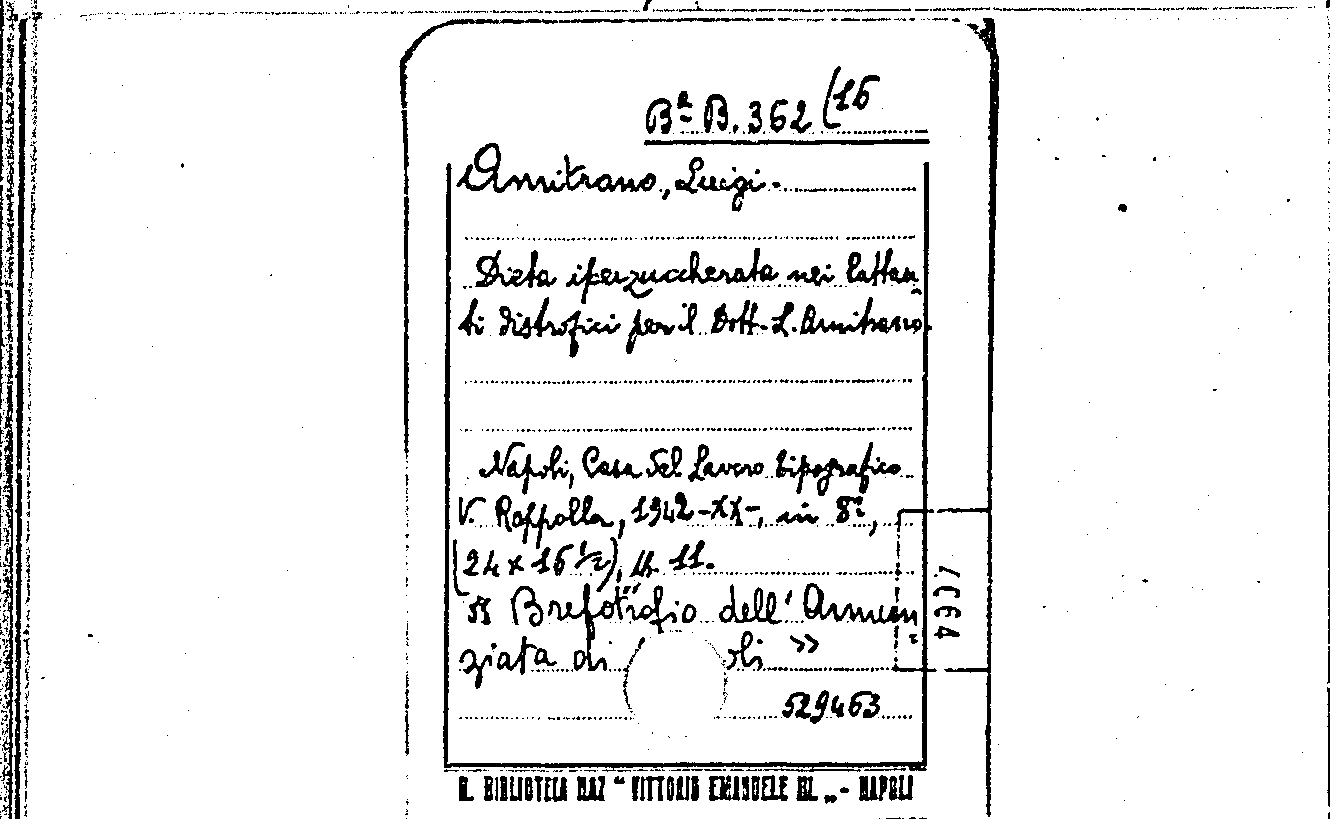 Bª B. 362 (16
Amitrano, Luigi.
Dieta iperzuccherata nei lattan-
ti distrofici per il Dott. L. Amitrano.
Napoli, Casa del Lavoro tipografico
V. Rappolla, 1942-XX-, in 8º,
(24 x 16 ½), pp. 11.
"Brefotrofio dell'Annun-
ziata di oli »
529463
R. BIBLIOTECA NAZ "VITTORIO EMANUELE III„ - NAPOLI